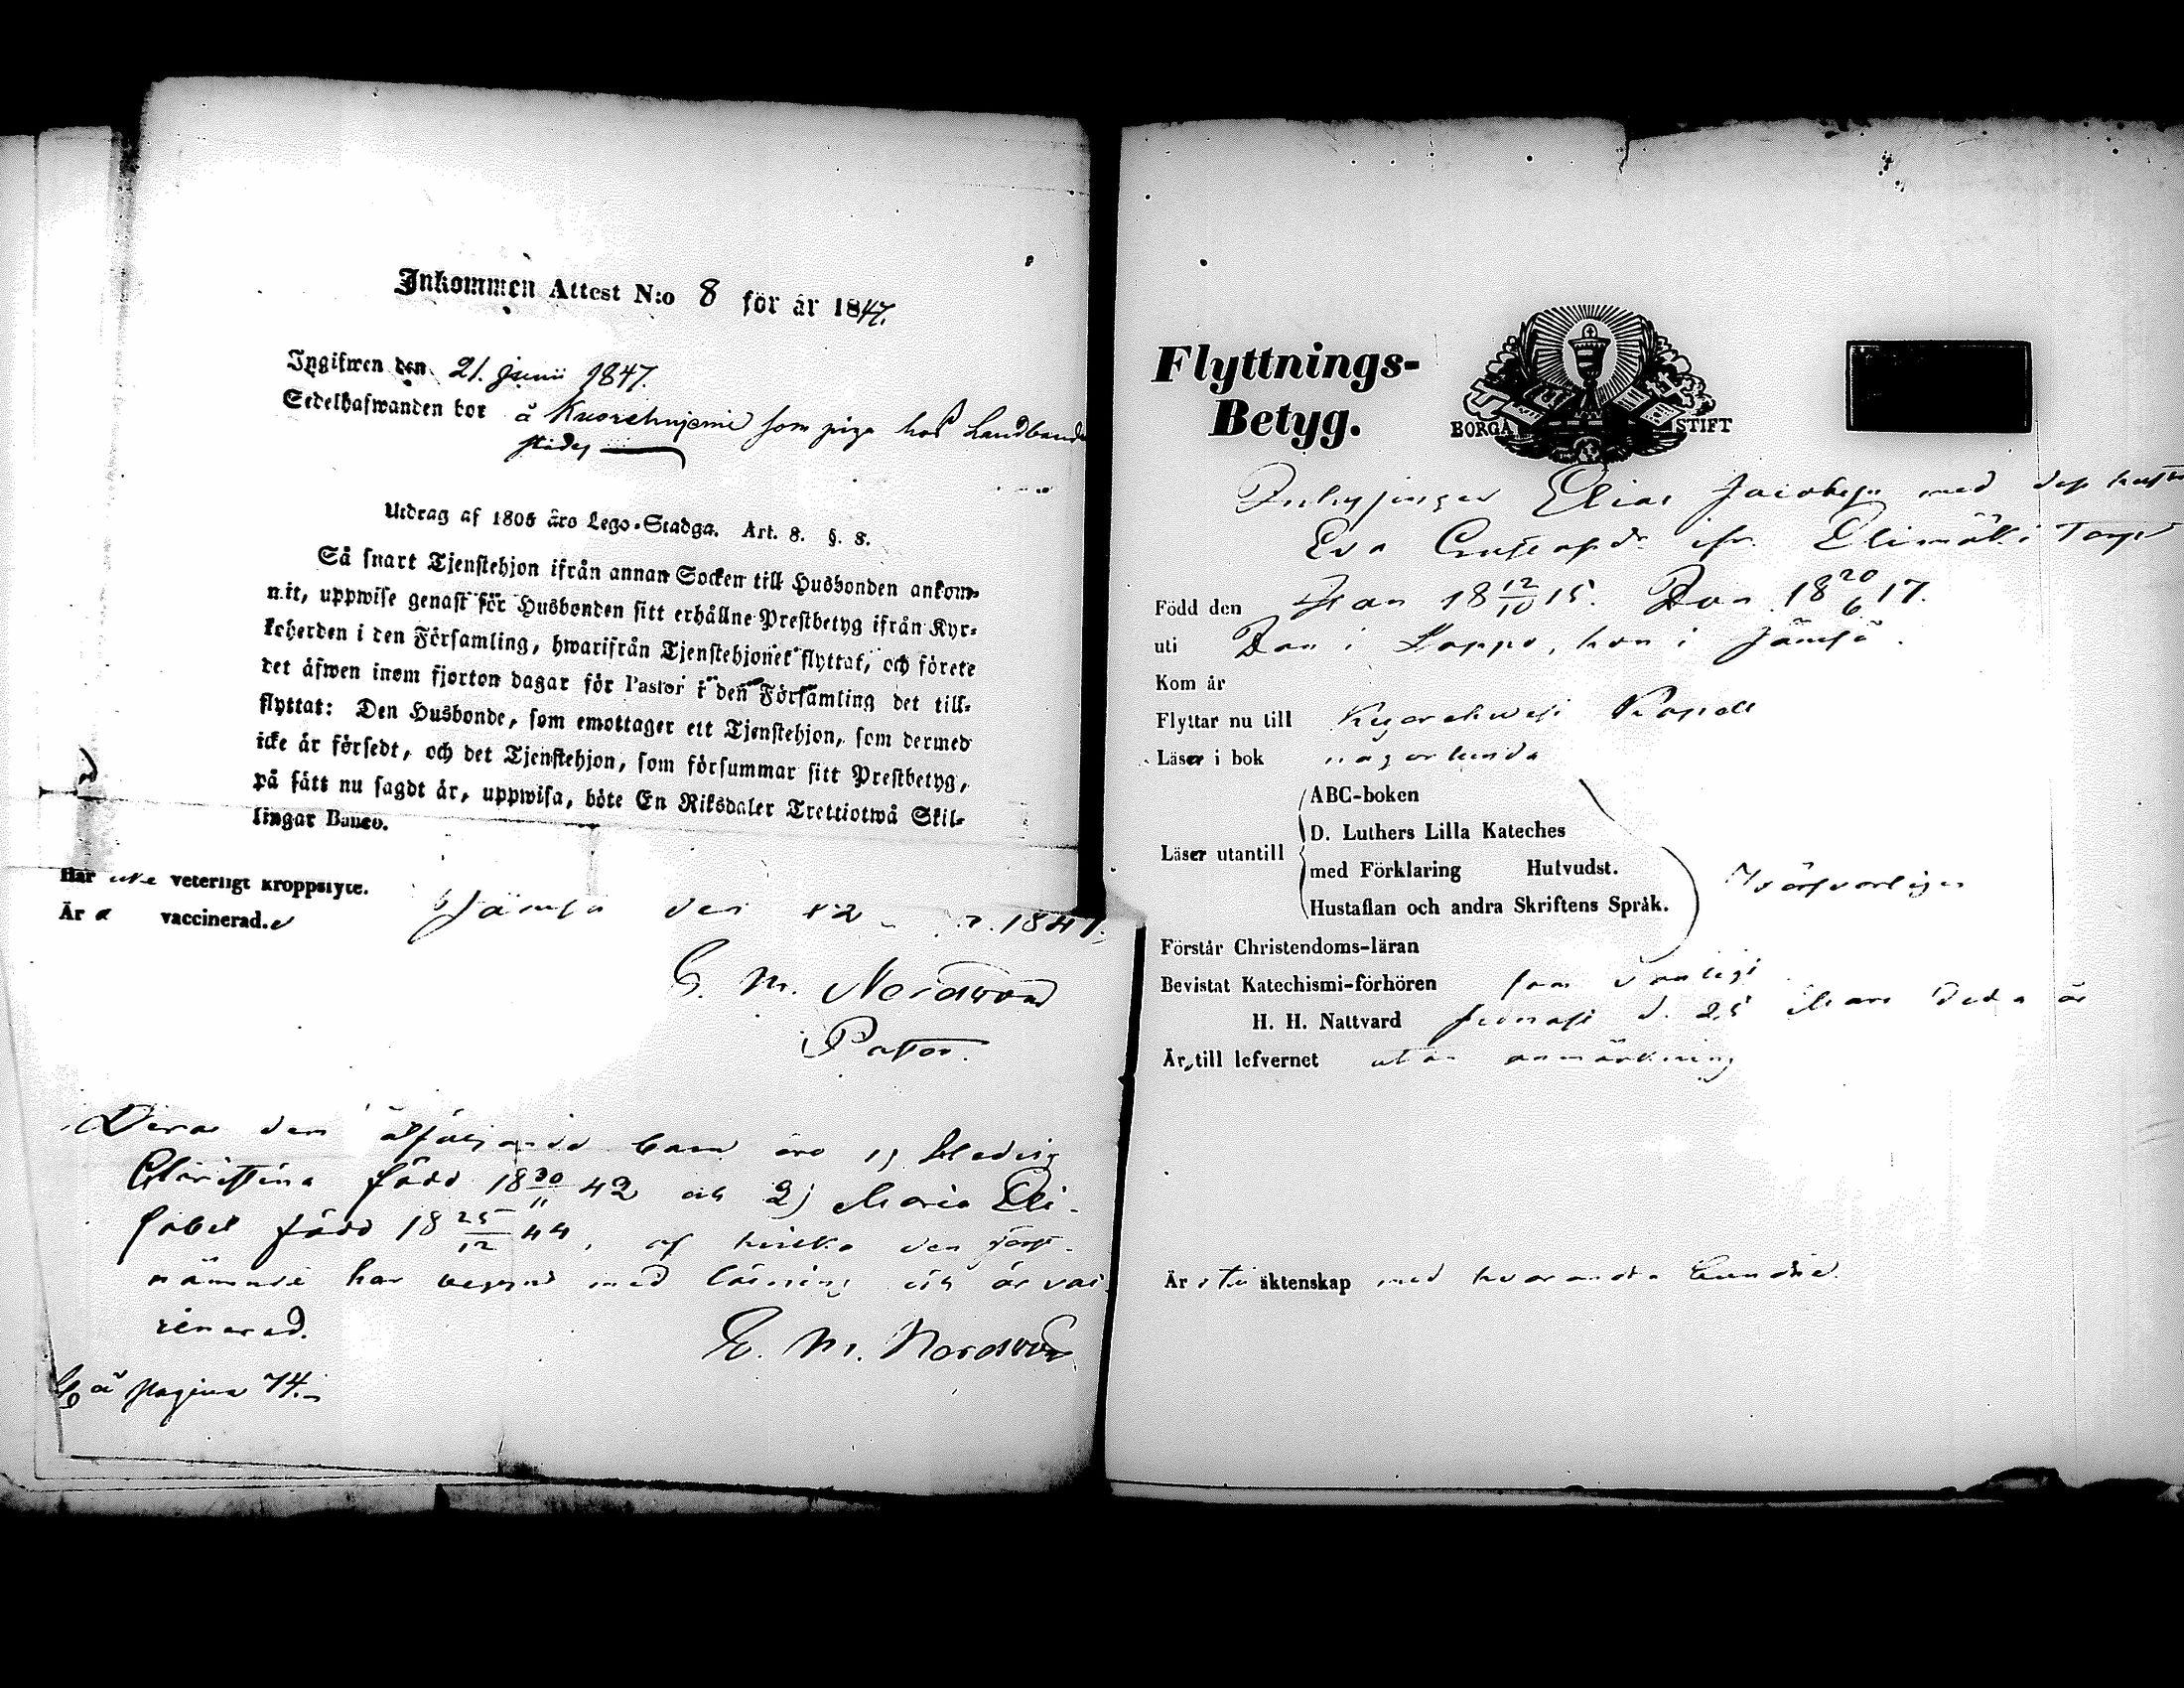 Inkommen Attest N:o 8 för år 1847.
Ingifwen den 21. junii 1847.
Sedelhafwanden bor å som piga hos Landbonde
Utdrag af 1805 års Lego-Stadga. Art. 8. §. 8.
Så snart Tjenstehjon ifrån annan Socken till Husbonden ankom-
mit, uppwise genast för Husbonden sitt erhållne Prestbetyg ifrån Kyr-
koherden i den Församling, hwarifrån Tjenstehjonet flyttat, och förete
det äfwen inom fjorton dagar för Pastor i den Församling det till-
flyttat: Den Husbonde, som emottager ett Tjenstehjon, som dermed
icke är försedt, och det Tjenstehjon, som försummar sitt Prestbetyg,
på sätt nu sagdt är, uppwisa, böte En Riksdaler Trettiotwå Skil-
lingar Banco.
Har icke veterligt kroppslyte.
Är a vaccinerad.e
Jämsä den 12
G. M. Nordwond
Pastor.
Deras dem åtföljande barn äro 1) Hedvig
Christina född 18 30/11 42 och 2) Maria Eli-
sabet född 18 25/12 44, af hvilka den först-
nämnde har begynt med läsning och är vac
cinerad.
G. M. Nordwond
å pagina 74.
Flyttnings-
Betyg.
BORGÅ STIFT
Elias Jacobsson med dess hustru
Eva ifr. Elimäki Torp
Född den Han 18 12/10 15. Hon 18 20/6 17.
uti Han i Loppo, hon i Jämsä.
Kom år
Flyttar nu till
Läser i bok någorlunda
Läser utantill
ABC-boken
D. Luthers Lilla Kateches
med Förklaring Hufvudst.
Hustaflan och andra Skriftens Språk.
Förstår Christendoms-läran
Bevistat Katechismi-förhören som vanligt
H. H. Nattvard senast d. 25 Mars detta år
Är till lefvernet utan anmärkning
Är i äktenskap med hvarandra